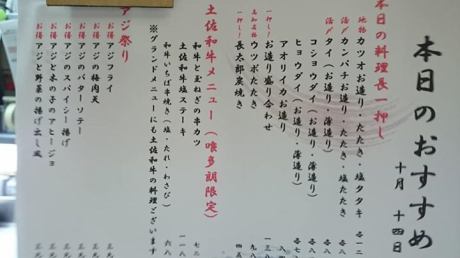 本日のおすすめ
十月 十四日
本日の料理長一押し
地物 カツオお造り・たたき・塩タタキ
活〆 カンパチお造り・たたき・塩たたき
活〆 タイ(お造り・薄造り)
コショウダイ(お造り・薄造り)
ヒョウダイ(お造り・薄造り)
アオリイカお造り
一押し! お造り盛り合わせ
高知名物 ウツボたたき
一押し! 長太郎炭焼き
土佐和牛メニュー(喰多朗限定)
和牛と玉ねぎの串カツ
土佐和牛ステーキ
和牛いちぼ串焼き(塩・たれ・わさび)
※グランドメニューにも土佐和牛の料理ございます
アジ祭り
お得 アジフライ
お得 アジの梅肉天
お得 アジのバターソテー
お得 アジのスパイシー揚げ
お得 アジと木の子のアヒージョ
お得 アジと野菜の揚げ出し風